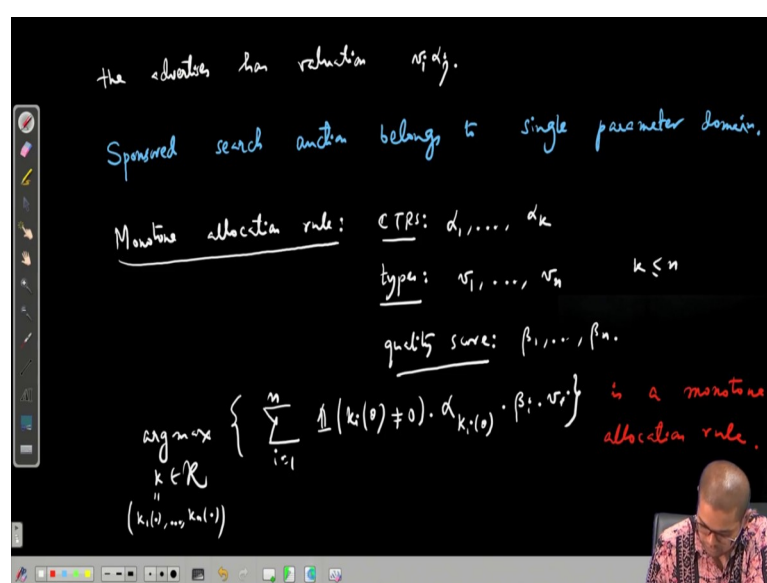 the advertiser has valuation v_i α_j.
Sponsored search auction belongs to single parameter domain.
Monotone allocation rule: CTRs: α_1, ..., α_k
types: v_1, ..., v_n k ≤ n
quality score: β_1, ..., β_n.
argmax { Σ_{i=1}^{n} 𝟙(k_i(θ) ≠ 0) · α_{k_i(θ)} · β_i · v_i } is a monotone
k ∈ R allocation rule.
"
(k_1(·), ..., k_n(·))